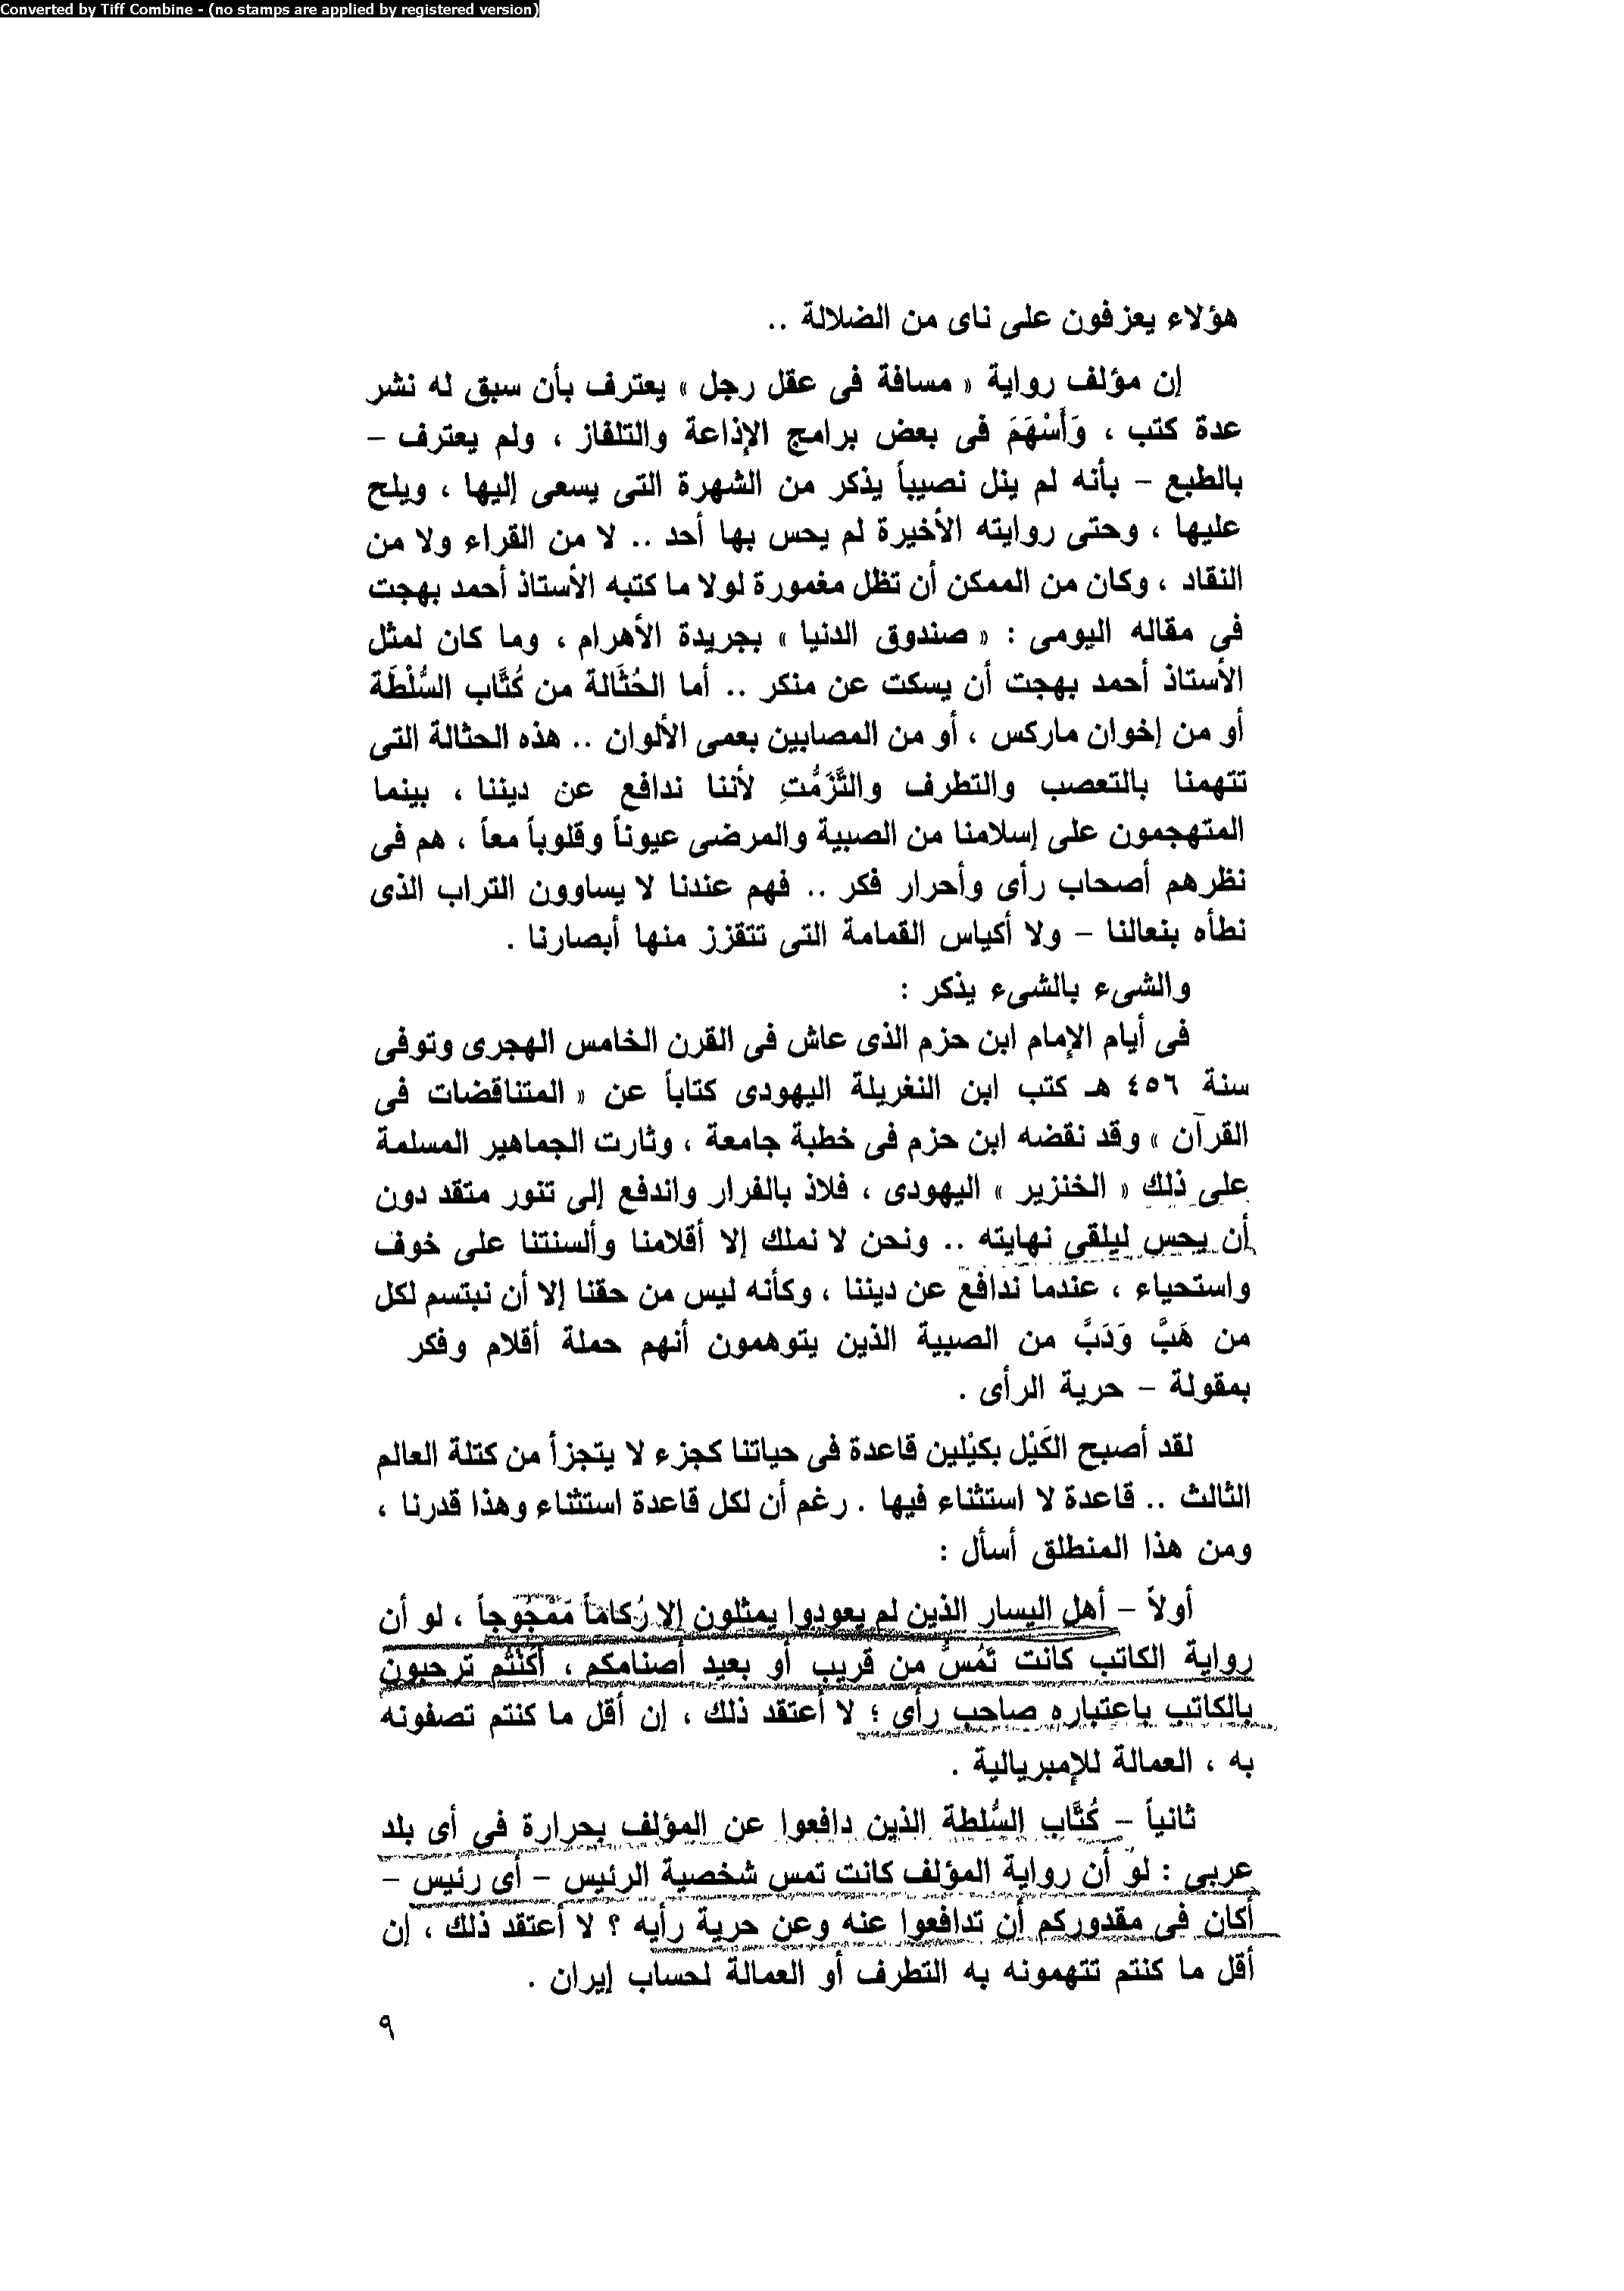 Converted by Tiff Combine - (no stamps are applied by registered version)
هؤلاء يعزفون على ناى من الضلالة ..
إن مؤلف رواية « مسافة فى عقل رجل » يعترف بأن سبق له نشر
عدة كتب ، وَأَسْهَمَ فى بعض برامج الإذاعة والتلفاز ، ولم يعترف –
بالطبع – بأنه لم ينل نصيباً يذكر من الشهرة التى يسعى إليها ، ويلح
عليها ، وحتى روايته الأخيرة لم يحس بها أحد .. لا من القراء ولا من
النقاد ، وكان من الممكن أن تظل مغمورة لولا ما كتبه الأستاذ أحمد بهجت
فى مقاله اليومى : « صندوق الدنيا » بجريدة الأهرام ، وما كان لمثل
الأستاذ أحمد بهجت أن يسكت عن منكر .. أما الحُثَالة من كُتَّاب السُّلْطَة
أو من إخوان ماركس ، أو من المصابين بعمى الألوان .. هذه الحثالة التى
تتهمنا بالتعصب والتطرف والتَّزَمُّتِ لأننا ندافع عن ديننا ، بينما
المتهجمون على إسلامنا من الصبية والمرضى عيوناً وقلوباً معاً ، هم فى
نظرهم أصحاب رأى وأحرار فكر .. فهم عندنا لا يساوون التراب الذى
نطأه بنعالنا – ولا أكياس القمامة التى تتقزز منها أبصارنا .
والشىء بالشىء يذكر :
فى أيام الإمام ابن حزم الذى عاش فى القرن الخامس الهجرى وتوفى
سنة ٤٥٦ هـ كتب ابن النغريلة اليهودى كتاباً عن « المتناقضات فى
القرآن » وقد نقضه ابن حزم فى خطبة جامعة ، وثارت الجماهير المسلمة
على ذلك « الخنزير » اليهودى ، فلاذ بالفرار واندفع إلى تنور متقد دون
أن يحس ليلقى نهايته .. ونحن لا نملك إلا أقلامنا وألسنتنا على خوف
واستحياء ، عندما ندافع عن ديننا ، وكأنه ليس من حقنا إلا أن نبتسم لكل
من هَبَّ وَدَبَّ من الصبية الذين يتوهمون أنهم حملة أقلام وفكر
بمقولة – حرية الرأى .
لقد أصبح الكَيْل بكيْلين قاعدة فى حياتنا كجزء لا يتجزأ من كتلة العالم
الثالث .. قاعدة لا استثناء فيها . رغم أن لكل قاعدة استثناء وهذا قدرنا ،
ومن هذا المنطلق أسأل :
أولاً – أهل اليسار الذين لم يعودوا يمثلون إلا رُكاماً مَمْجُوجاً ، لو أن
رواية الكاتب كانت تمُسّ من قريب أو بعيد أصنامكم ، أكنتم ترحبون
بالكاتب باعتباره صاحب رأى ؛ لا أعتقد ذلك ، إن أقل ما كنتم تصفونه
به ، العمالة للإمبريالية .
ثانياً – كُتَّاب السُّلطة الذين دافعوا عن المؤلف بحرارة فى أى بلد
عربى : لو أن رواية المؤلف كانت تمس شخصية الرئيس – أى رئيس –
أكان فى مقدوركم أن تدافعوا عنه وعن حرية رأيه ؟ لا أعتقد ذلك ، إن
أقل ما كنتم تتهمونه به التطرف أو العمالة لحساب إيران .
٩